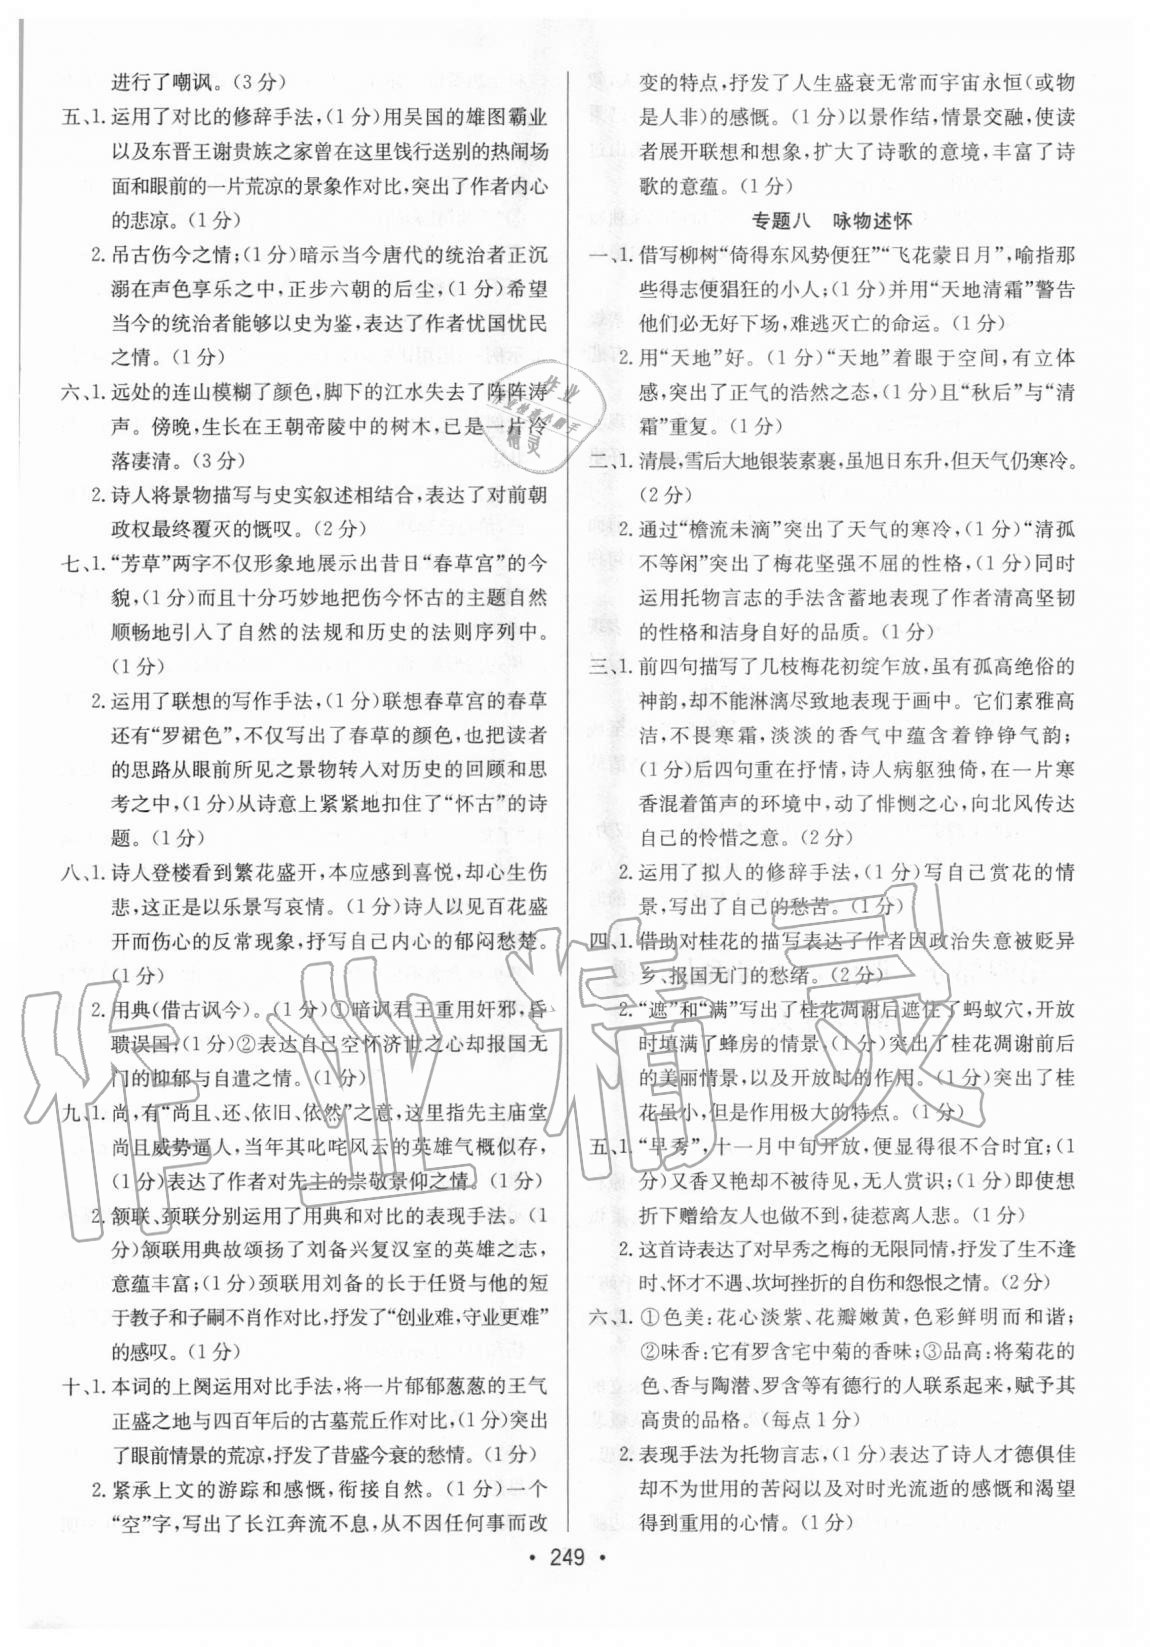 进行了嘲讽。(3分)
五、1. 运用了对比的修辞手法,(1分)用吴国的雄图霸业
以及东晋王谢贵族之家曾在这里饯行送别的热闹场
面和眼前的一片荒凉的景象作对比,突出了作者内心
的悲凉。(1分)
2. 吊古伤今之情;(1分)暗示当今唐代的统治者正沉
溺在声色享乐之中,正步六朝的后尘,(1分)希望
当今的统治者能够以史为鉴,表达了作者忧国忧民
之情。(1分)
六、1. 远处的连山模糊了颜色,脚下的江水失去了阵阵涛
声。傍晚,生长在王朝帝陵中的树木,已是一片冷
落凄清。(3分)
2. 诗人将景物描写与史实叙述相结合,表达了对前朝
政权最终覆灭的慨叹。(2分)
七、1. “芳草”两字不仅形象地展示出昔日“春草宫”的今
貌,(1分)而且十分巧妙地把伤今怀古的主题自然
顺畅地引入了自然的法规和历史的法则序列中。
(1分)
2. 运用了联想的写作手法,(1分)联想春草宫的春草
还有“罗裙色”,不仅写出了春草的颜色,也把读者
的思路从眼前所见之景物转入对历史的回顾和思
考之中,(1分)从诗意上紧紧地扣住了“怀古”的诗
题。(1分)
八、1. 诗人登楼看到繁花盛开,本应感到喜悦,却心生伤
悲,这正是以乐景写哀情。(1分)诗人以见百花盛
开而伤心的反常现象,抒写自己内心的郁闷愁楚。
(1分)
2. 用典(借古讽今)。(1分)①暗讽君王重用奸邪,昏
聩误国;(1分)②表达自己空怀济世之心却报国无
门的抑郁与自遣之情。(1分)
九、1. 尚,有“尚且、还、依旧、依然”之意,这里指先主庙堂
尚且威势逼人,当年其叱咤风云的英雄气概似存,
(1分)表达了作者对先主的崇敬景仰之情。(1分)
2. 颔联、颈联分别运用了用典和对比的表现手法。(1
分)颔联用典故颂扬了刘备兴复汉室的英雄之志,
意蕴丰富;(1分)颈联用刘备的长于任贤与他的短
于教子和子嗣不肖作对比,抒发了“创业难,守业更难”
的感叹。(1分)
十、1. 本词的上阕运用对比手法,将一片郁郁葱葱的王气
正盛之地与四百年后的古墓荒丘作对比,(1分)突出
了眼前情景的荒凉,抒发了昔盛今衰的愁情。(1分)
2. 紧承上文的游踪和感慨,衔接自然。(1分)一个
“空”字,写出了长江奔流不息,从不因任何事而改
变的特点,抒发了人生盛衰无常而宇宙永恒(或物
是人非)的感慨。(1分)以景作结,情景交融,使读
者展开联想和想象,扩大了诗歌的意境,丰富了诗
歌的意蕴。(1分)
专题八 咏物述怀
一、1. 借写柳树“倚得东风势便狂”“飞花蒙日月”,喻指那
些得志便猖狂的小人;(1分)并用“天地清霜”警告
他们必无好下场,难逃灭亡的命运。(1分)
2. 用“天地”好。(1分)“天地”着眼于空间,有立体
感,突出了正气的浩然之态,(1分)且“秋后”与“清
霜”重复。(1分)
二、1. 清晨,雪后大地银装素裹,虽旭日东升,但天气仍寒冷。
(2分)
2. 通过“檐流未滴”突出了天气的寒冷,(1分)“清孤
不等闲”突出了梅花坚强不屈的性格,(1分)同时
运用托物言志的手法含蓄地表现了作者清高坚韧
的性格和洁身自好的品质。(1分)
三、1. 前四句描写了几枝梅花初绽乍放,虽有孤高绝俗的
神韵,却不能淋漓尽致地表现于画中。它们素雅高
洁,不畏寒霜,淡淡的香气中蕴含着铮铮气韵;
(1分)后四句重在抒情,诗人病躯独倚,在一片寒
香混着笛声的环境中,动了悱恻之心,向北风传达
自己的怜惜之意。(2分)
2. 运用了拟人的修辞手法,(1分)写自己赏花的情
景,写出了自己的愁苦。(1分)
四、1. 借助对桂花的描写表达了作者因政治失意被贬异
乡、报国无门的愁绪。(2分)
2. “遮”和“满”写出了桂花凋谢后遮住了蚂蚁穴,开放
时填满了蜂房的情景,(1分)突出了桂花凋谢前后
的美丽情景,以及开放时的作用。(1分)突出了桂
花虽小,但是作用极大的特点。(1分)
五、1. “早秀”,十一月中旬开放,便显得很不合时宜;(1
分)又香又艳却在深夜,无人赏识;(1分)即使想
折下赠给友人也做不到,徒惹离人悲。(1分)
2. 这首诗表达了对早秀之梅的无限同情,抒发了生不逢
时、怀才不遇、坎坷挫折的自伤和怨恨之情。(2分)
六、1. ①色美:花心淡紫、花瓣嫩黄,色彩鲜明而和谐;
②味香:它有罗含宅中菊的香味;③品高:将菊花的
色、香与陶潜、罗含等有德行的人联系起来,赋予其
高贵的品格。(每点1分)
2. 表现手法为托物言志,(1分)表达了诗人才德俱佳
却不为世用的苦闷以及对时光流逝的感慨和渴望
得到重用的心情。(1分)
• 249 •
作业精灵